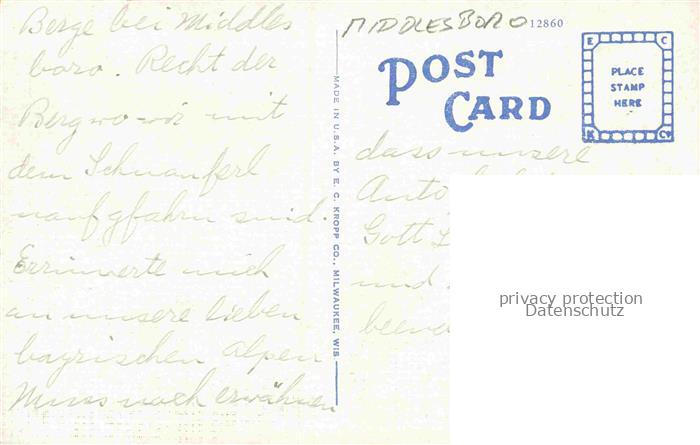 Berge bei Middles
boro. Recht der
Berg wo wir mit
dem Schnauferl
naufgfahrn sind.
Errinnerte mich
an unsere lieben
bayrischen Alpen
Muss noch erwähnen
MIDDLESBORO
12860
POST
CARD
E C
PLACE
STAMP
HERE
K Co
MADE IN U.S.A. BY E. C. KROPP CO., MILWAUKEE, WIS.
dass unsere
Auto
Gott
und
privacy protection
Datenschutz